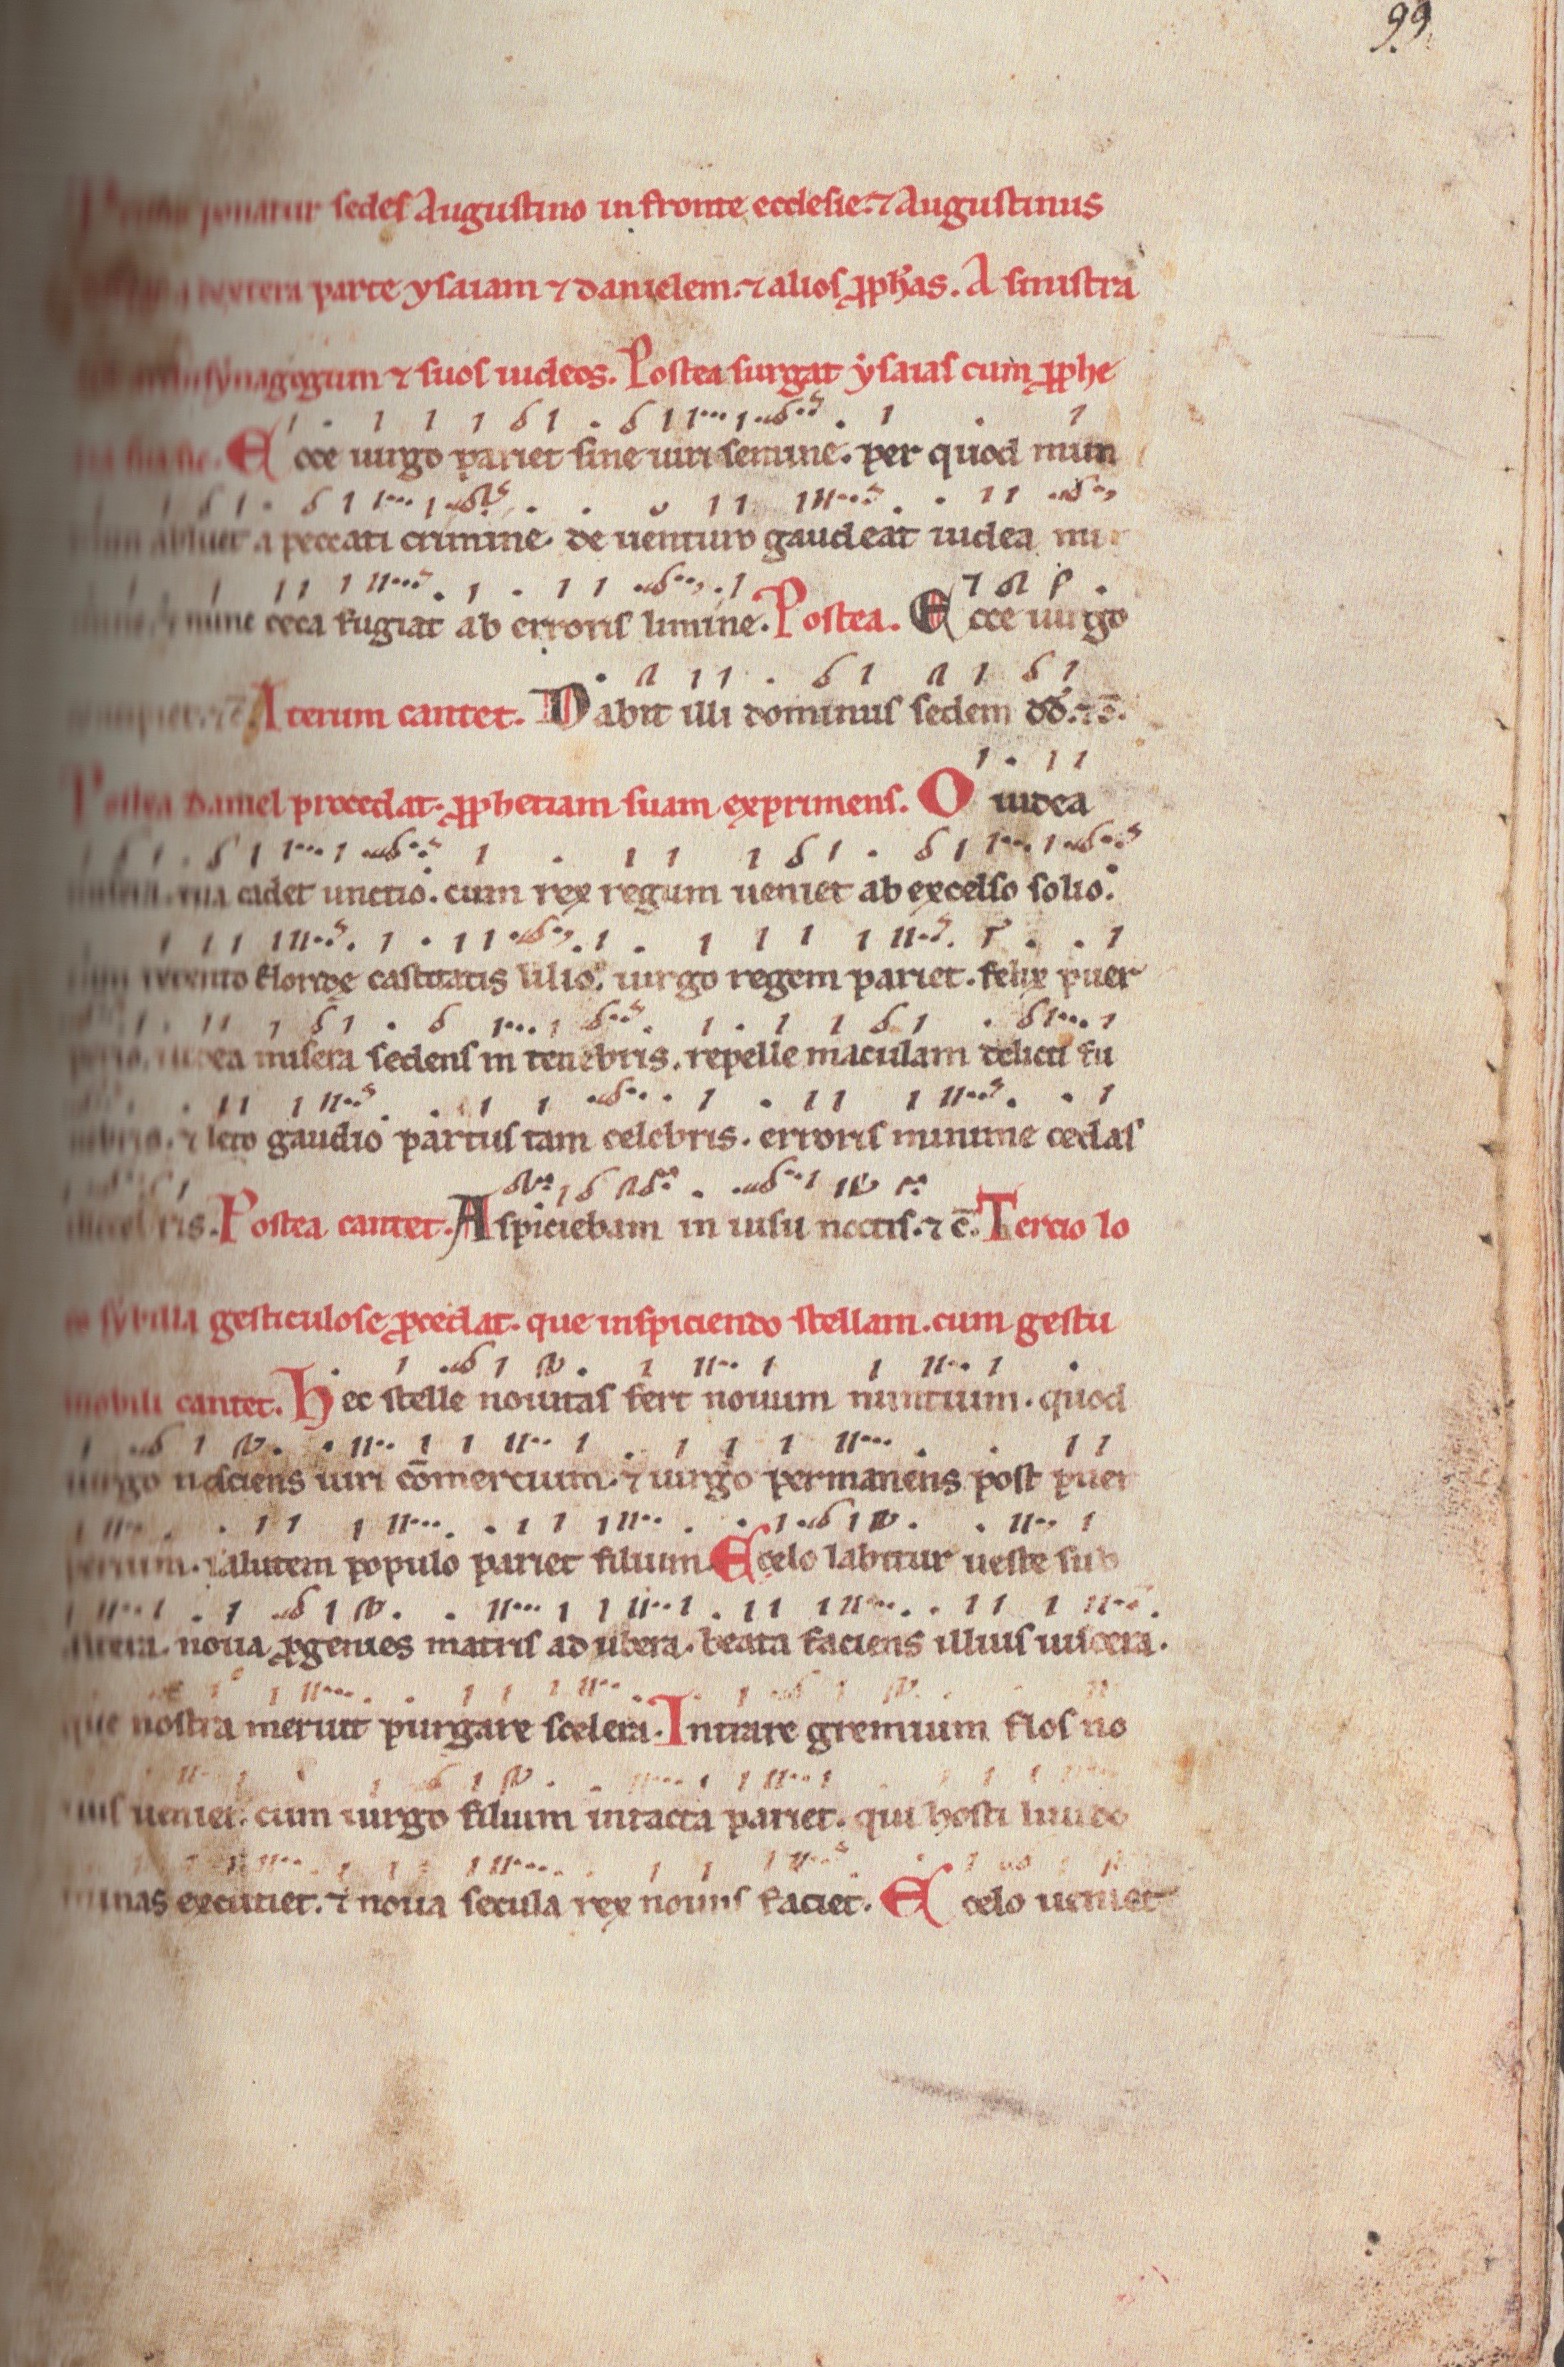 99.
ponatur sedes Augustino in fronte ecclesie. ⁊ Augustinus
dextera parte ysaiam ⁊ danielem. ⁊ alios ꝓph̄as. A sinistra
synagogum ⁊ suos iudeos. Postea surgat ysaias cum ꝓphe
Ecce uirgo pariet sine uiri semine. per quod mun
abluet a peccati crimine. de uenturo gaudeat iudea
⁊ nunc ceca fugiat ab erroris limine. Postea. Ecce uirgo
Iterum cantet. Dabit illi dominus sedem dd̄. ⁊ c̄.
Postea Daniel procedat. ꝓphetiam suam exprimens. O iudea
misera. tua cadet unctio. cum rex regum ueniet ab excelso solio.
cum retento floride castitatis lilio. uirgo regem pariet. felix puer
iudea misera sedens in tenebris. repelle maculam delicti fu
nebris. ⁊ leto gaudio partus tam celebris. erroris minime cedas
illecebris. Postea cantet. Aspiciebam in uisu noctis. ⁊ c̄. Tercio lo
co sybilla gesticulose ꝓcedat. que inspiciendo stellam. cum gestu
mobili cantet. Hec stelle nouitas fert nouum nuntium. quod
uirgo nesciens uiri cōmercium. ⁊ uirgo permanens post puer
perium. salutem populo pariet filium. E celo labitur ueste sub
altera. noua ꝓgenies matris ad ubera. beata faciens illius uiscera.
que nostra meruit purgare scelera. Intrare gremium flos no
uus ueniet. cum uirgo filium intacta pariet. qui hosti liuido
minas excutiet. ⁊ noua secula rex nouus faciet. E celo ueniet